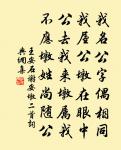 我名公字偶相同
我屋公墩在眼中
公去我來墩屬我
不應墩姓尚隨公
王安石謝安墩二首詞
典網集